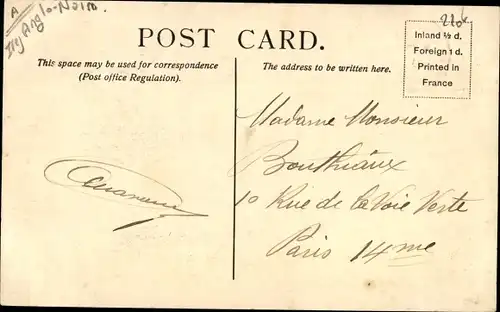 A
Anglo-Norm.
220f
POST CARD.
This space may be used for correspondence
(Post office Regulation).
The address to be written here.
Inland ½ d.
Foreign 1 d.
Printed in
France
Madame Monsieur
Bouthiaux
10 Rue de la Voie Verte
Paris 14me